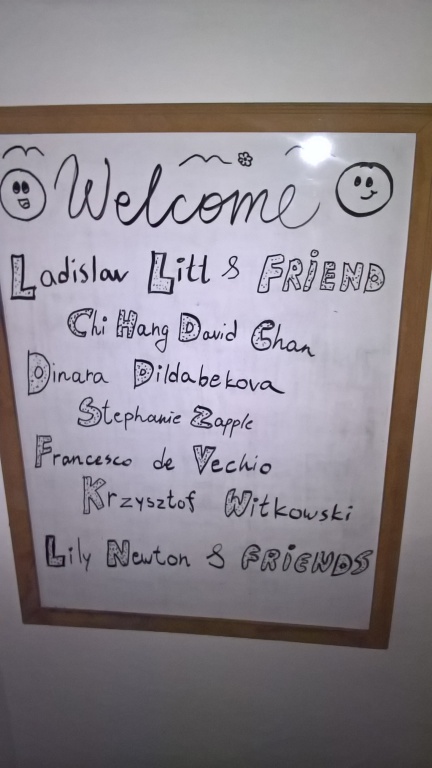 Welcome
Ladislav Litl & FRiEND
Chi Hang David Chan
Dinara Dildabekova
Stephanie Zapple
Francesco de Vechio
Krzysztof Witkowski
Lily Newton & FRiENDS